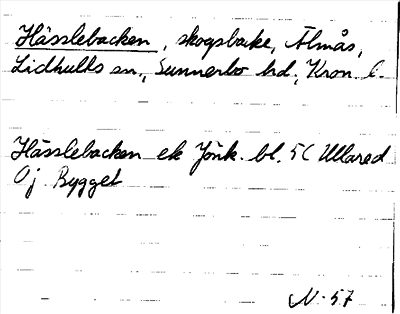 Hässlebacken, skogsbacke, Älmås,
Lidhults sn., Sunnerbo hd., Kron. l.
Hässlebacken ek Jönk. bl. 5C Ullared
Oj. Bygget
N. 57